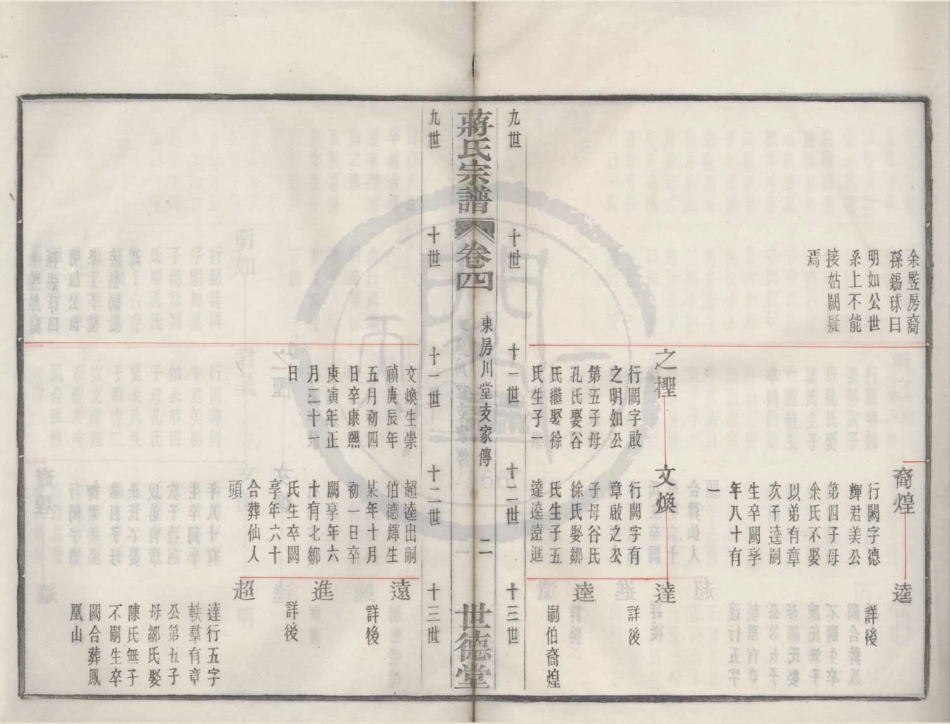 余曁房裔
孫錫球曰
明如公世
系上不能
接姑闕疑
焉
裔煌
行闕字德
輝君美公
第四子母
余氏不娶
以弟有章
次子逵嗣
生卒闕享
年八十有
一
逵
詳後
之檉
行闕字啟
之明如公
第五子母
孔氏娶谷
氏繼娶徐
氏生子一
文煥
行闕字有
章啟之公
子母谷氏
徐氏娶鄒
氏生子五
達逵遠進
達
詳後
逵
嗣伯裔煌
九世
十世
十一世
十二世
十三世
蔣氏宗譜
卷四
東房川堂支家傳
二
世德堂
九世
十世
十一世
十二世
十三世
文煥生崇
禎庚辰年
五月初四
日卒康熙
庚寅年正
月二十一
日
超逵出嗣
伯德輝生
某年十月
初一日卒
闕享年六
十有七鄒
氏生卒闕
享年六十
合葬仙人
頭
遠
詳後
進
詳後
超
達行五字
軼羣有章
公第五子
母鄒氏娶
陳氏無子
不嗣生卒
闕合葬鳳
凰山